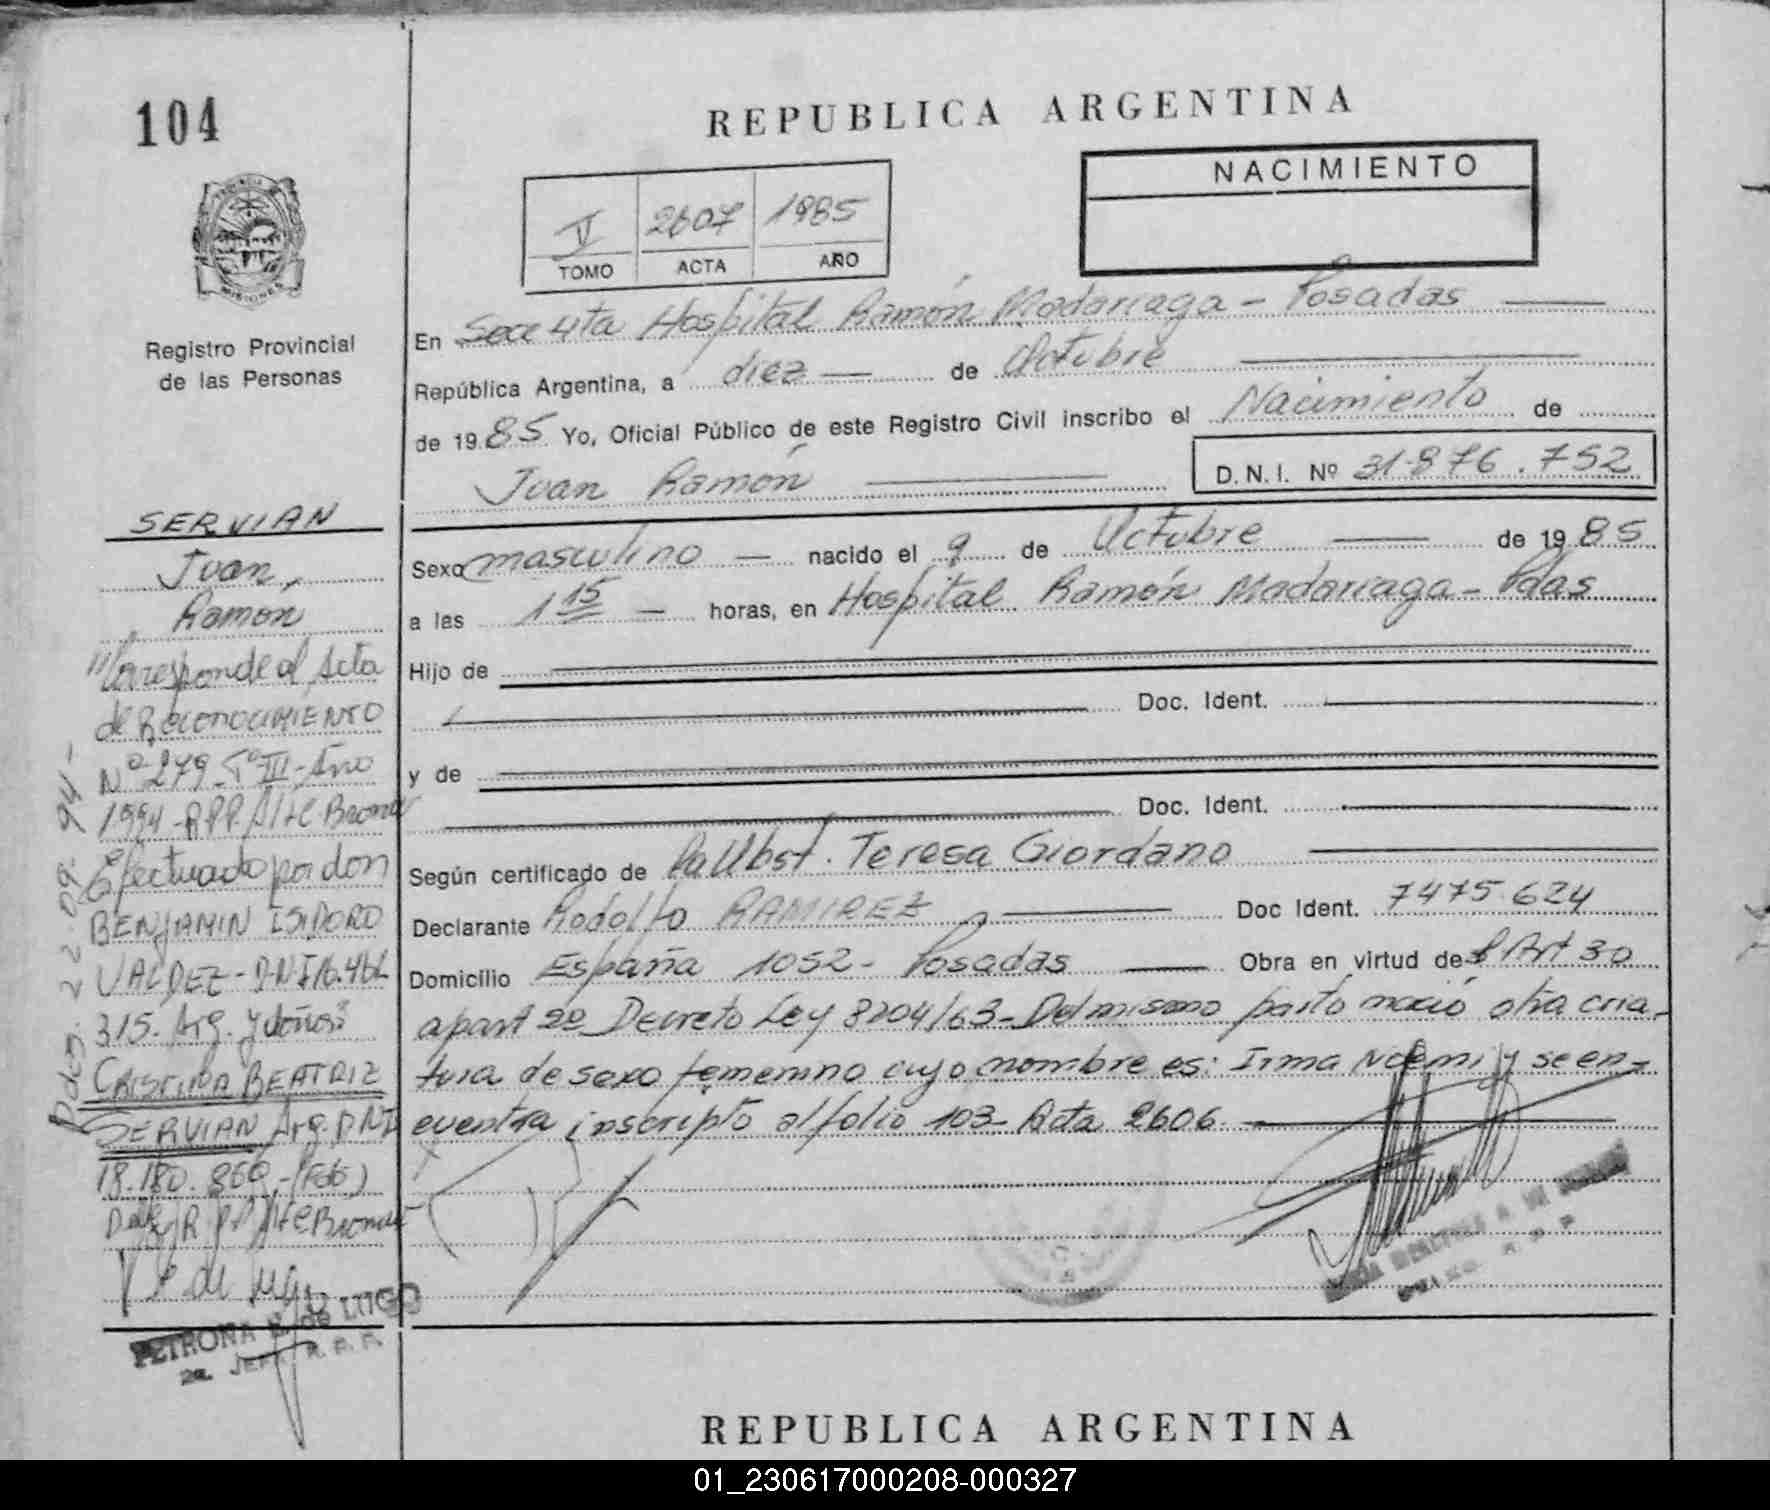 104
REPUBLICA ARGENTINA
NACIMIENTO
V 2607 1985
TOMO ACTA AÑO
MISIONES
Registro Provincial
de las Personas
En Secc 4ta Hospital Ramón Madariaga - Posadas
República Argentina, a diez de Octubre
de 1985 Yo, Oficial Público de este Registro Civil inscribo el Nacimiento de
Juan Ramón D.N.I. Nº 31.876.752
Sexo masculino nacido el 9 de Octubre de 1985
a las 1 15 horas, en Hospital Ramón Madariaga - Pdas
Hijo de
Doc. Ident.
y de
Doc. Ident.
Según certificado de Teresa Giordano
Declarante Rodolfo RAMIREZ Doc Ident. 7475.624
Domicilio España 1052 - Posadas Obra en virtud del Art 30
apart 2º Decreto Ley 8204/63 - Del mismo parto nació otra cria-
tura de sexo femenino cuyo nombre es: Irma Noemi y se en-
cuentra inscripto al folio 103 - Acta 2606
SERVIAN
Juan,
Ramón
"Corresponde al Acta
de RECONOCIMIENTO
Nº 279 - Tº III - Año
1994 - R.P.P. Alte Brown
Efectuado por don
BENJAMIN ISIDORO
VALDEZ - DNI 16.
315. Arg. y doña:
CRISTINA BEATRIZ
SERVIAN Arg. DNI
18.180.860 - (Fdo)
R.P.P. Alte Brown
Pdas. 22.09.94 -
PETRONA de LUGO
2a. JEFA R. P. P.
REPUBLICA ARGENTINA
01_230617000208-000327